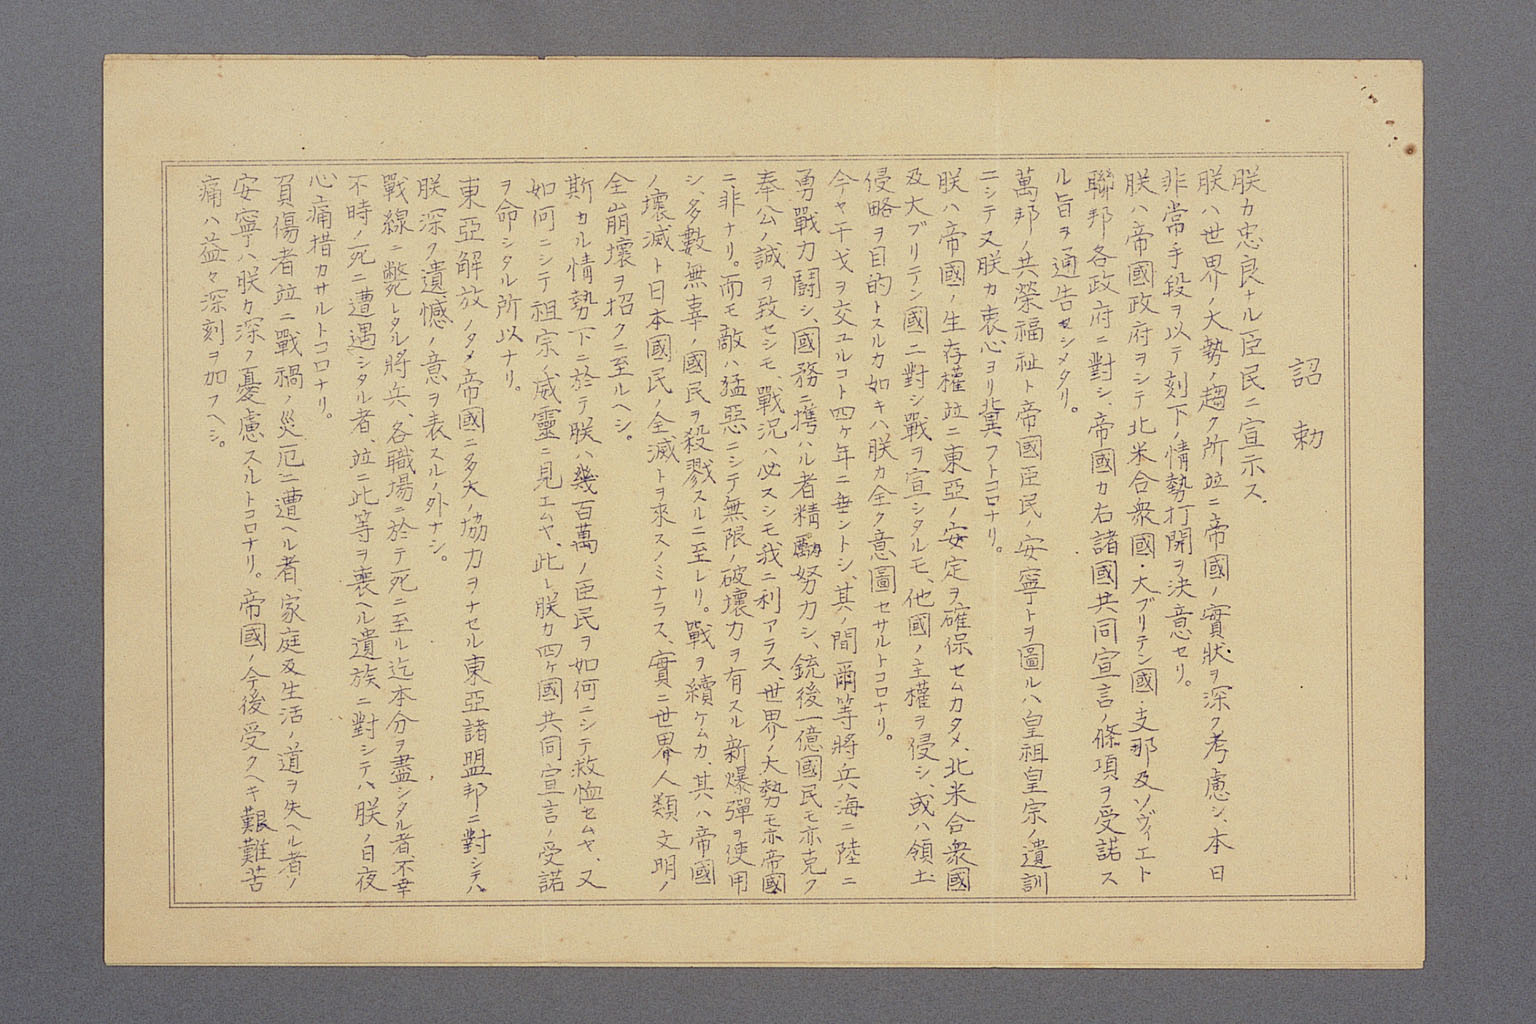 詔勅
朕カ忠良ナル臣民ニ宣示ス、
朕ハ世界ノ大勢ノ趨ク所竝ニ帝國ノ實狀ヲ深ク考慮シ、本日
非常手段ヲ以テ刻下ノ情勢打開ヲ決意セリ。
朕ハ帝國政府ヲシテ北米合衆國・大ブリテン國・支那及ソヴィエト
聯邦各政府ニ對シ、帝國カ右諸國共同宣言ノ條項ヲ受諾ス
ル旨ヲ通告セシメタリ。
萬邦ノ共榮福祉ト帝國臣民ノ安寧トヲ圖ルハ皇祖皇宗ノ遺訓
ニシテ又朕カ衷心ヨリ冀フトコロナリ。
朕ハ帝國ノ生存權竝ニ東亞ノ安定ヲ確保セムカタメ、北米合衆國
及大ブリテン國ニ對シ戰ヲ宣シタルモ、他國ノ主權ヲ侵シ、或ハ領土
侵略ヲ目的トスルカ如キハ朕カ全ク意圖セサルトコロナリ。
今ヤ干戈ヲ交ユルコト四ヶ年ニ垂ントシ、其ノ間爾等將兵海ニ陸ニ
勇戰力鬪シ、國務ニ携ハル者精勵努力シ、銃後一億國民モ亦克ク
奉公ノ誠ヲ致セシモ、戰況ハ必スシモ我ニ利アラス、世界ノ大勢モ亦帝國
ニ非ナリ。而モ敵ハ猛惡ニシテ無限ノ破壞力ヲ有スル新爆彈ヲ使用
シ、多數無辜ノ國民ヲ殺戮スルニ至レリ。戰ヲ續ケムカ、其ハ帝國
ノ壞滅ト日本國民ノ全滅トヲ來スノミナラス、實ニ世界人類文明ノ
全崩壞ヲ招クニ至ルヘシ。
斯カル情勢下ニ於テ朕ハ幾百萬ノ臣民ヲ如何ニシテ救恤セムヤ、又
如何ニシテ祖宗ノ威靈ニ見エムヤ、此レ朕カ四ヶ國共同宣言ノ受諾
ヲ命シタル所以ナリ。
東亞解放ノタメ帝國ニ多大ノ協力ヲナセル東亞諸盟邦ニ對シテハ
朕深ク遺憾ノ意ヲ表スルノ外ナシ。
戰線ニ斃レタル將兵、各職場ニ於テ死ニ至ル迄本分ヲ盡シタル者不幸
不時ノ死ニ遭遇シタル者、竝ニ此等ヲ喪ヘル遺族ニ對シテハ朕ノ日夜
心痛措カサルトコロナリ。
負傷者竝ニ戰禍ノ災厄ニ遭ヘル者、家庭及生活ノ道ヲ失ヘル者ノ
安寧ハ朕カ深ク憂慮スルトコロナリ。帝國ノ今後受クヘキ艱難苦
痛ハ益々深刻ヲ加フヘシ。